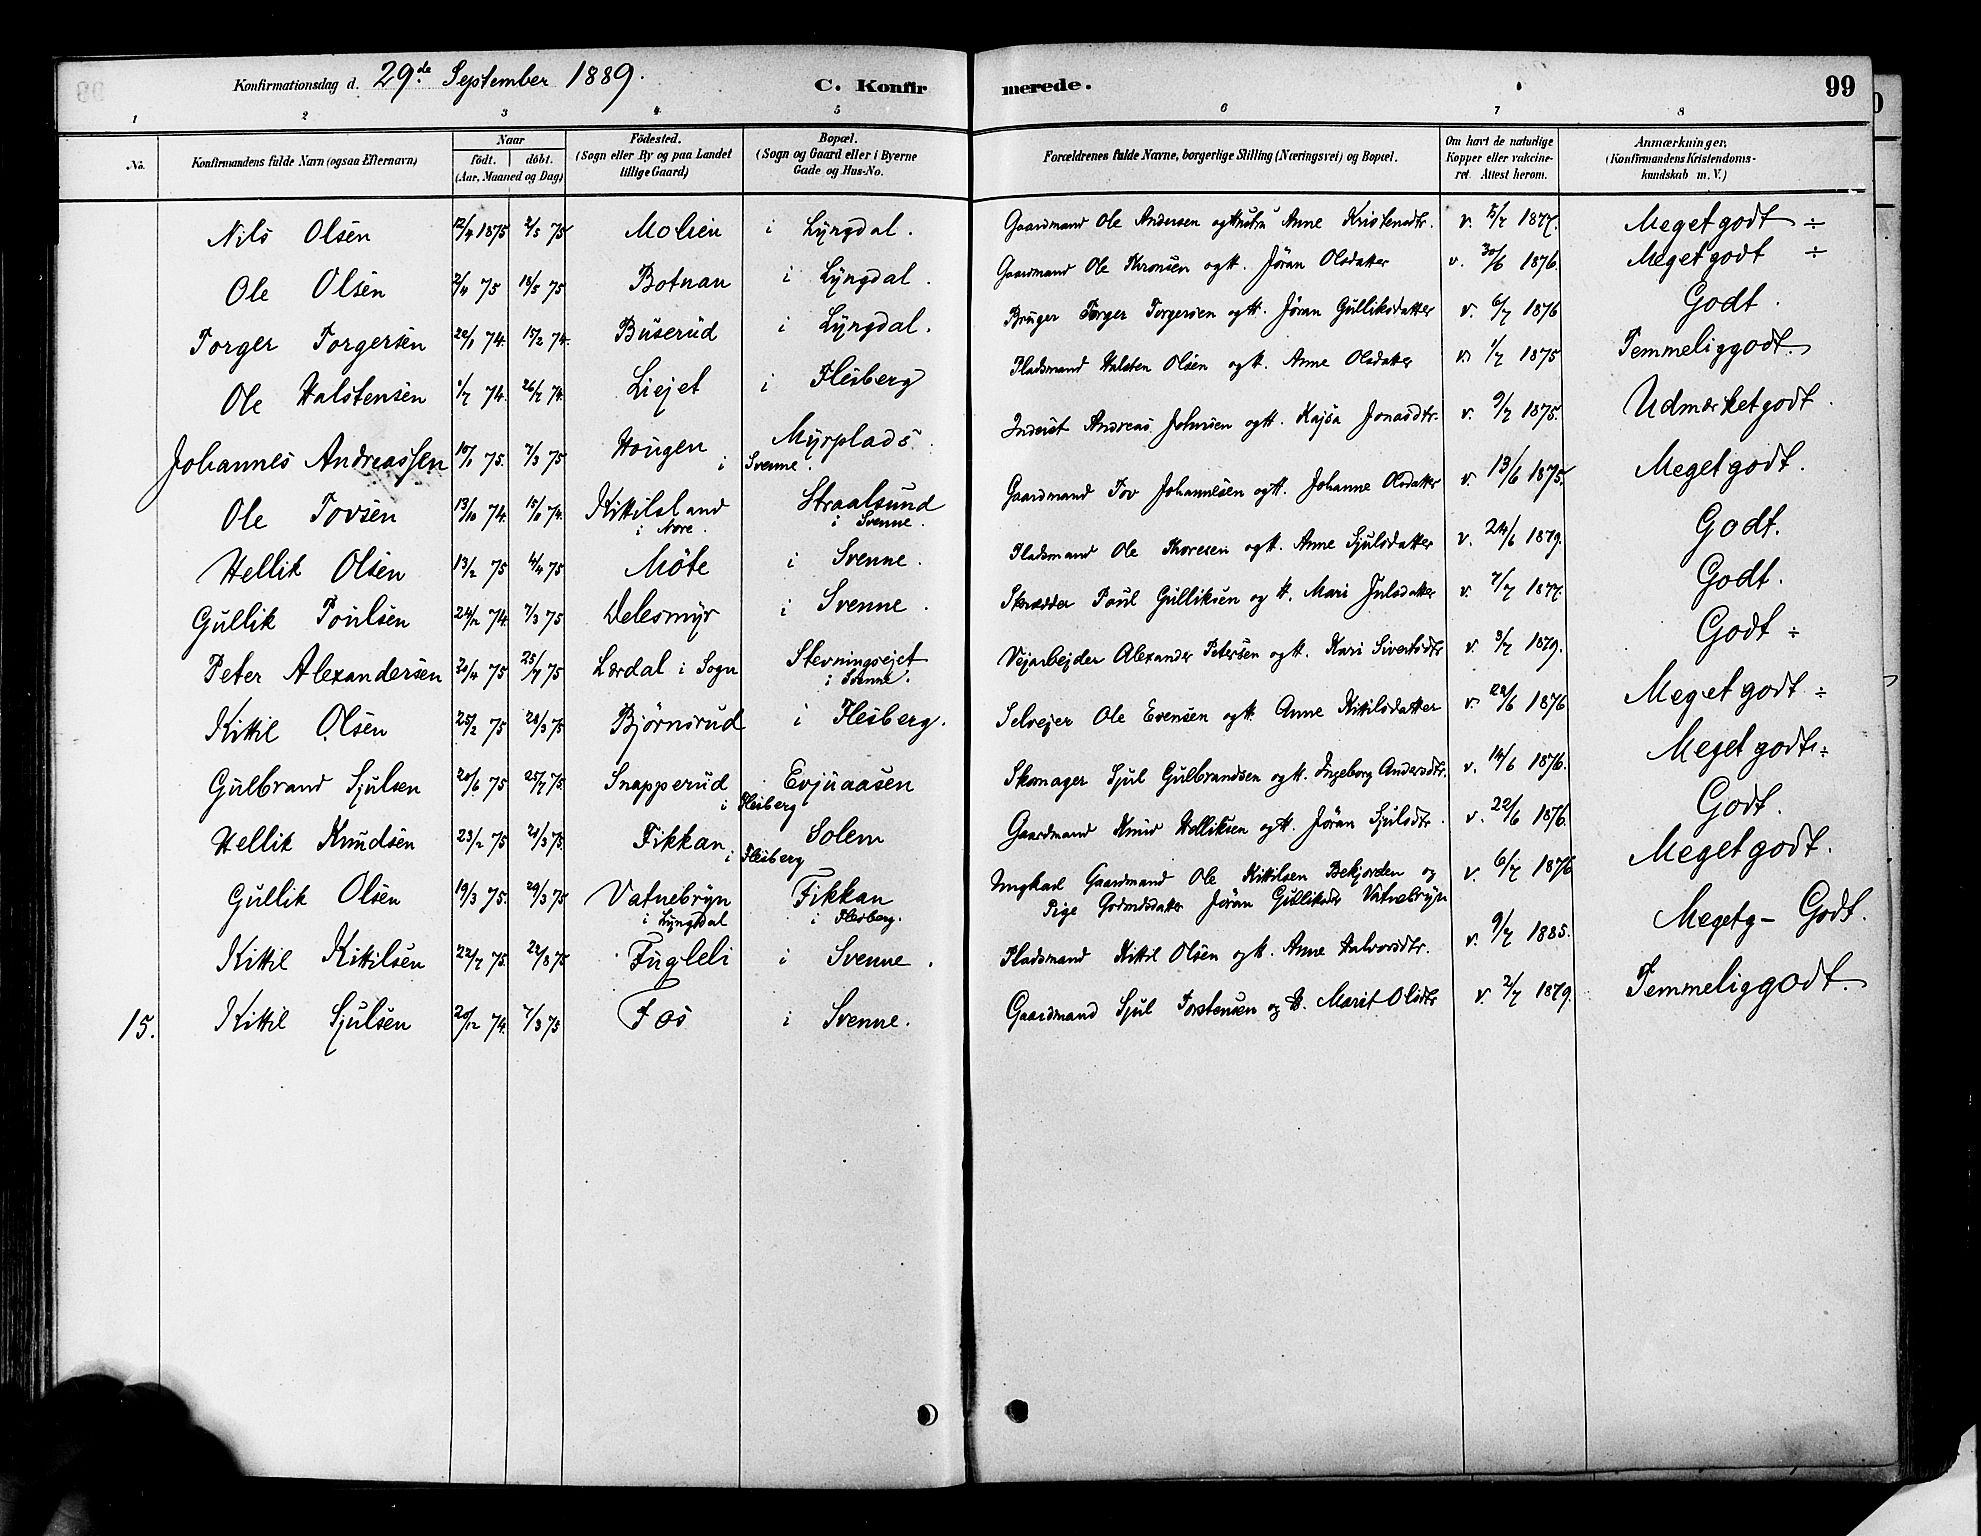 Konfirmationsdag d. 29de September 1889. C. Konfirmerede. 99
1 2 3 4 5 6 7 8
No. Konfirmandens fulde Navn (ogsaa Efternavn) Naar født. døbt. (Aar, Maaned og Dag) Fødested. (Sogn eller By og paa Landet tillige Gaard) Bopæl. (Sogn og Gaard eller i Byerne Gade og Hus-No. Forældrenes fulde Navne, borgerlige Stilling (Næringsvei) og Bopæl. Om havt de naturlige Kopper eller vakcineret. Attest herom. Anmærkninger. (Konfirmandens Kristendomskundskab m. V.)
Nils Olsen 12/4 1875 2/5 75 Molsen i Lyngdal. Gaardmand Ole Andersen og Hustru Anne Kristensdtr. v. 5/7 1877. Meget godt ÷
Ole Olsen 2/4 75 18/5 75 Botnan i Lyngdal. Gaardmand Ole og H. Jöran Olsdatter v. 30/6 1876. Meget godt ÷
Torger Torgersen 22/1 74. 15/2 74. Buserud i Lyngdal. Bruger Torger Torgersen og H. Jöran Gulliksdatter v. 6/7 1876 Godt.
Ole Halstensen 1/7 74. 26/7 74. Liejet i Flesberg Pladsmand Halsten Olsen og H. Anne Olsdatter v. 1/7 1875 Temmelig godt.
Johannes Andreassen 10/1 75. 7/3 75 Hougen i Myrplads Svenne. Inderst Andreas Johnsen og H. Kajsa Jonasdtr. v. 9/7 1875. Udmærket godt.
Ole Tovsen 13/10 74. 15/11 74. Kittilsland i Nore. Straalsund i Svenne. Gaardmand Tov Johannesen og H. Johanne Olsdatter v. 13/6 1875. Meget godt.
Hellik Olsen 13/2 75 11/4 75 Möte i Svenne. Pladsmand Ole Thoresen og H. Anne Sjulsdatter v. 24/6 1879. Godt.
Gullik Poulsen 24/12 74. 7/3 75 Velesmyr i Svenne. Skrædder Poul Gulliksen og H. Mari Julsdatter v. 7/7 1877. Godt.
Peter Alexandersen 30/4 75 25/7 75 Lærdal i Sogn Stevningsejet i Svenne. Vejarbejder Alexander Petersen og H. Kari Sivertsdtr v. 3/7 1879. Godt ÷
Kittil Olsen 25/2 75 28/3 75 Bjørnsrud i Flesberg. Selvejer Ole Evensen og H. Anne Kittilsdatter v. 22/6 1876 Meget godt ÷
Gulbrand Sjulsen 20/6 75 25/7 75. Snapperud i Evjuaasen Flesberg Skomager Sjul Gulbrandsen og H. Ingeborg Andersdtr. v. 14/6 1876. Meget godt ÷
Hellik Knudsen 23/2 75 21/3 75. Fikkan i Solem Flesberg Gaardmand Knud Helliksen og H. Jöran Sjulsdtr. v. 22/6 1876. Godt.
Gullik Olsen 19/3 75. 29/3 75 Vatnebryn i Lyngdal Fikkan i Flesberg. Ungkarl Gaardmand Ole Kittilsen Bekjorden og
Pige Jöran Gulliksdtr Vatnebryn v. 6/7 1876 Meget godt.
Kittil Kittilsen 22/7 75. 22/8 75 Fugleli i Svenne. Pladsmand Kittil Olsen og H. Anne Halvorsdtr. v. 9/7 1885. Megetg – Godt.
15. Kittil Sjulsen 20/12 74. 7/3 75 Fos i Svenne. Gaardmand Sjul Torstensen og H. Marit Olsdtr v. 2/7 1879. Temmelig godt.